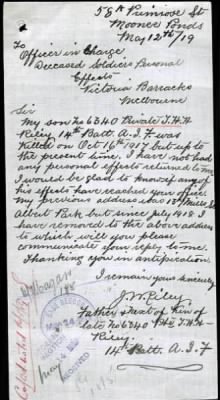 58A Primrose St
Moonee Ponds
May 12th/19
To
Officer in Charge
Deceased Soldiers Personal
Effects
Victoria Barracks
Melbourne
Sir
My son no 6340 Private J.H.H
Riley 14th Batt. A.I.F was
Killed on Oct 16th 1917 but up to
the present time, I have not had
any personal effects returned to me
I would be glad to know if any of
his effects have reached your office.
My previous address was 13 Mills St
Albert Park but since July 1918 I
have removed to the above address
to which will you please
communicate your reply to me.
Thanking you in anticipation.
I remain yours sincerely
J. W. Riley
Father & next of kin of
late no 6340 Pte J.H.H Riley
14th Batt. A.I.F
BASE RECORDS
MAY
RECEIVED